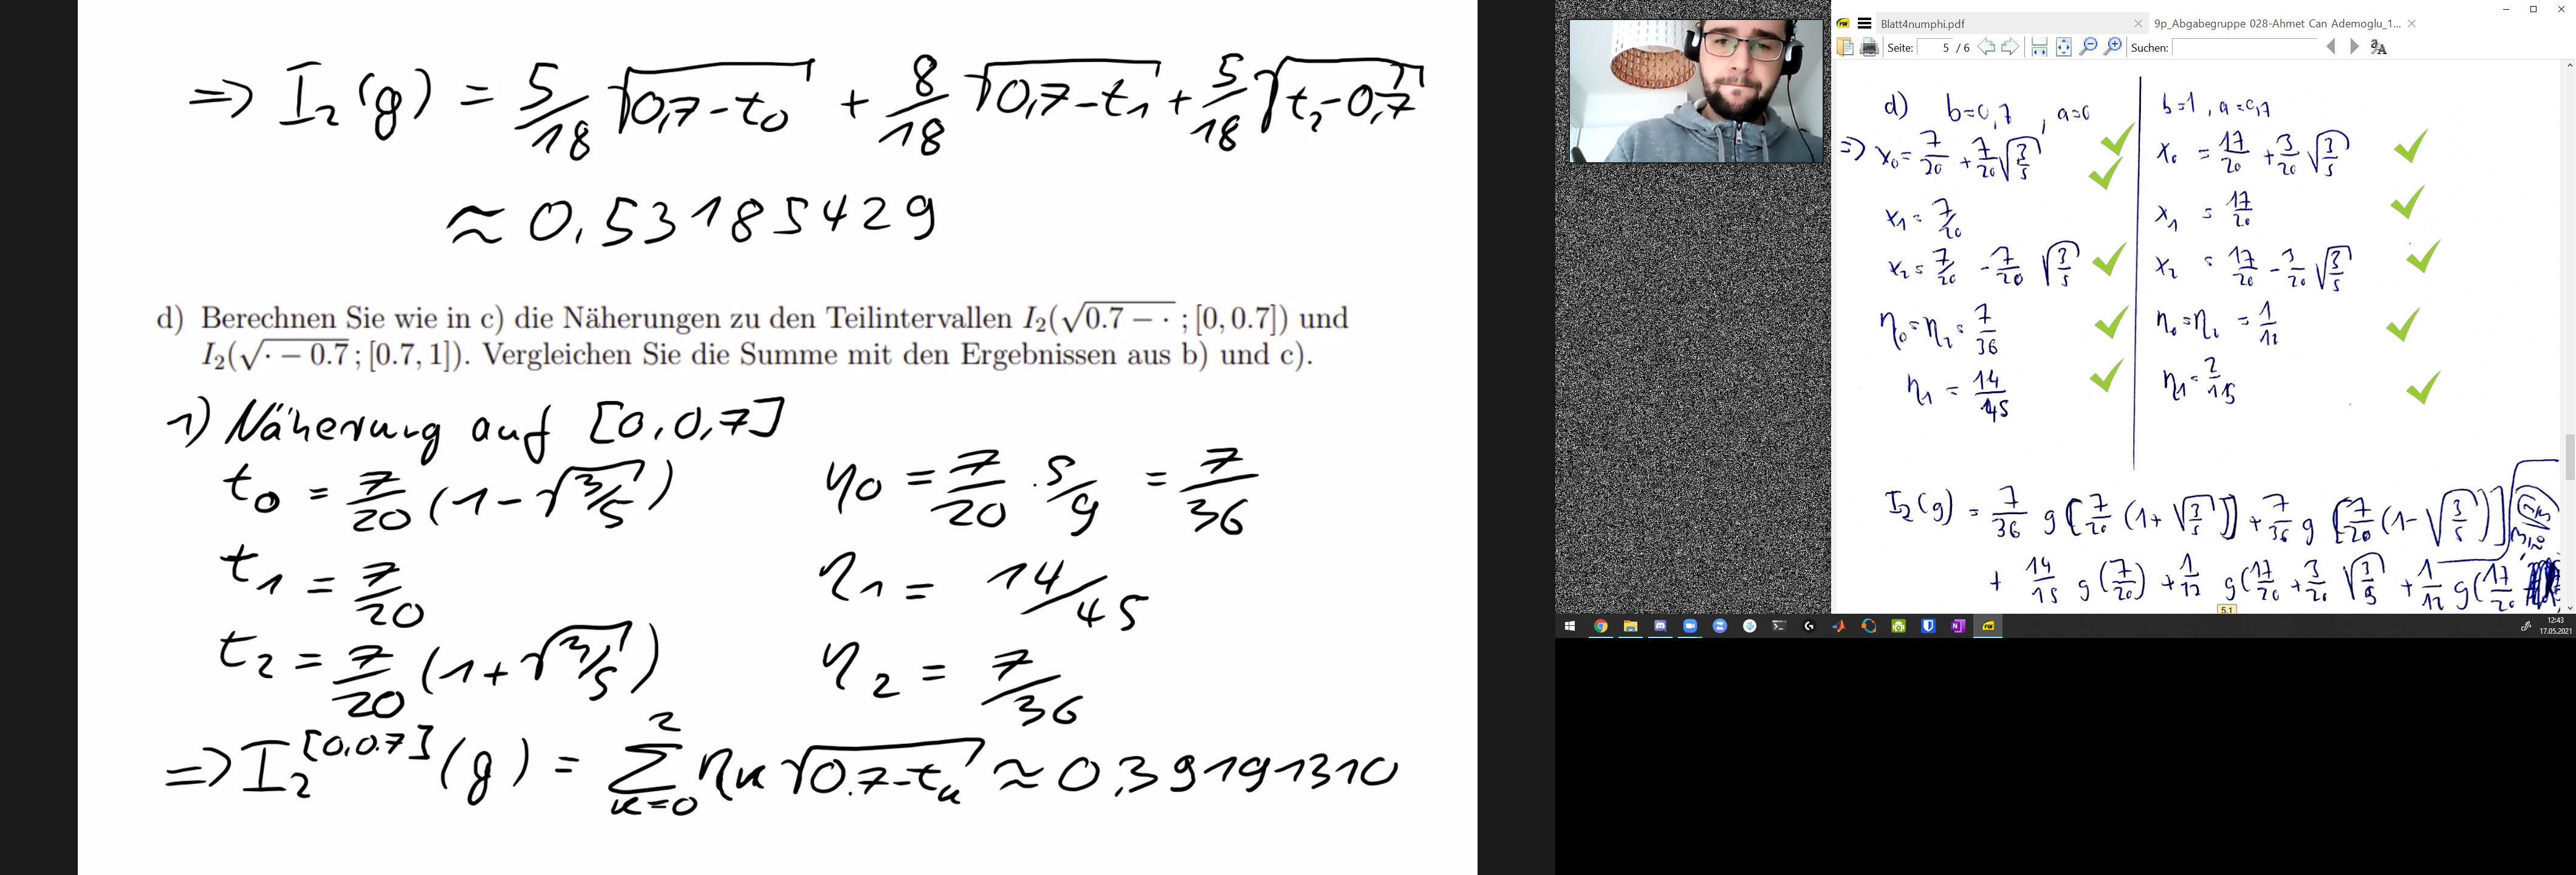 => I₂(g) = 5/18 √(0,7-t₀) + 8/18 √(0,7-t₁) + 5/18 √(t₂-0,7)
≈ 0,53185429
d) Berechnen Sie wie in c) die Näherungen zu den Teilintervallen I₂(√(0.7 − ·) ; [0, 0.7]) und
I₂(√(· − 0.7) ; [0.7, 1]). Vergleichen Sie die Summe mit den Ergebnissen aus b) und c).
1) Näherung auf [0,0,7]
t₀ = 7/20 (1-√(3/5)) η₀ = 7/20 · 5/9 = 7/36
t₁ = 7/20 η₁ = 14/45
t₂ = 7/20 (1+√(3/5)) η₂ = 7/36
=> I₂^[0,0.7] (g) = Σ_{k=0}^{2} ηₖ √(0.7-tₖ) ≈ 0,39191310
Blatt4numphi.pdf
9p_Abgabegruppe 028-Ahmet Can Ademoglu_1...
Seite: 5 / 6 Suchen:
d) b=0,7 , a=0
=> x₀ = 7/20 + 7/20 √(3/5)
x₁ = 7/20
x₂ = 7/20 - 7/20 √(3/5)
η₀ = η₂ = 7/36
η₁ = 14/45
b=1 , a=0,7
x₀ = 17/20 + 3/20 √(3/5)
x₁ = 17/20
x₂ = 17/20 - 3/20 √(3/5)
η₀ = η₂ = 1/12
η₁ = 2/15
I₂(g) = 7/36 g[7/20 (1+√(3/5))] + 7/36 g[7/20 (1-√(3/5))]
+ 14/15 g(7/20) + 1/12 g(17/20 + 3/20 √(3/5) + 1/12 g(17/20
5.1
12:43
17.05.2021